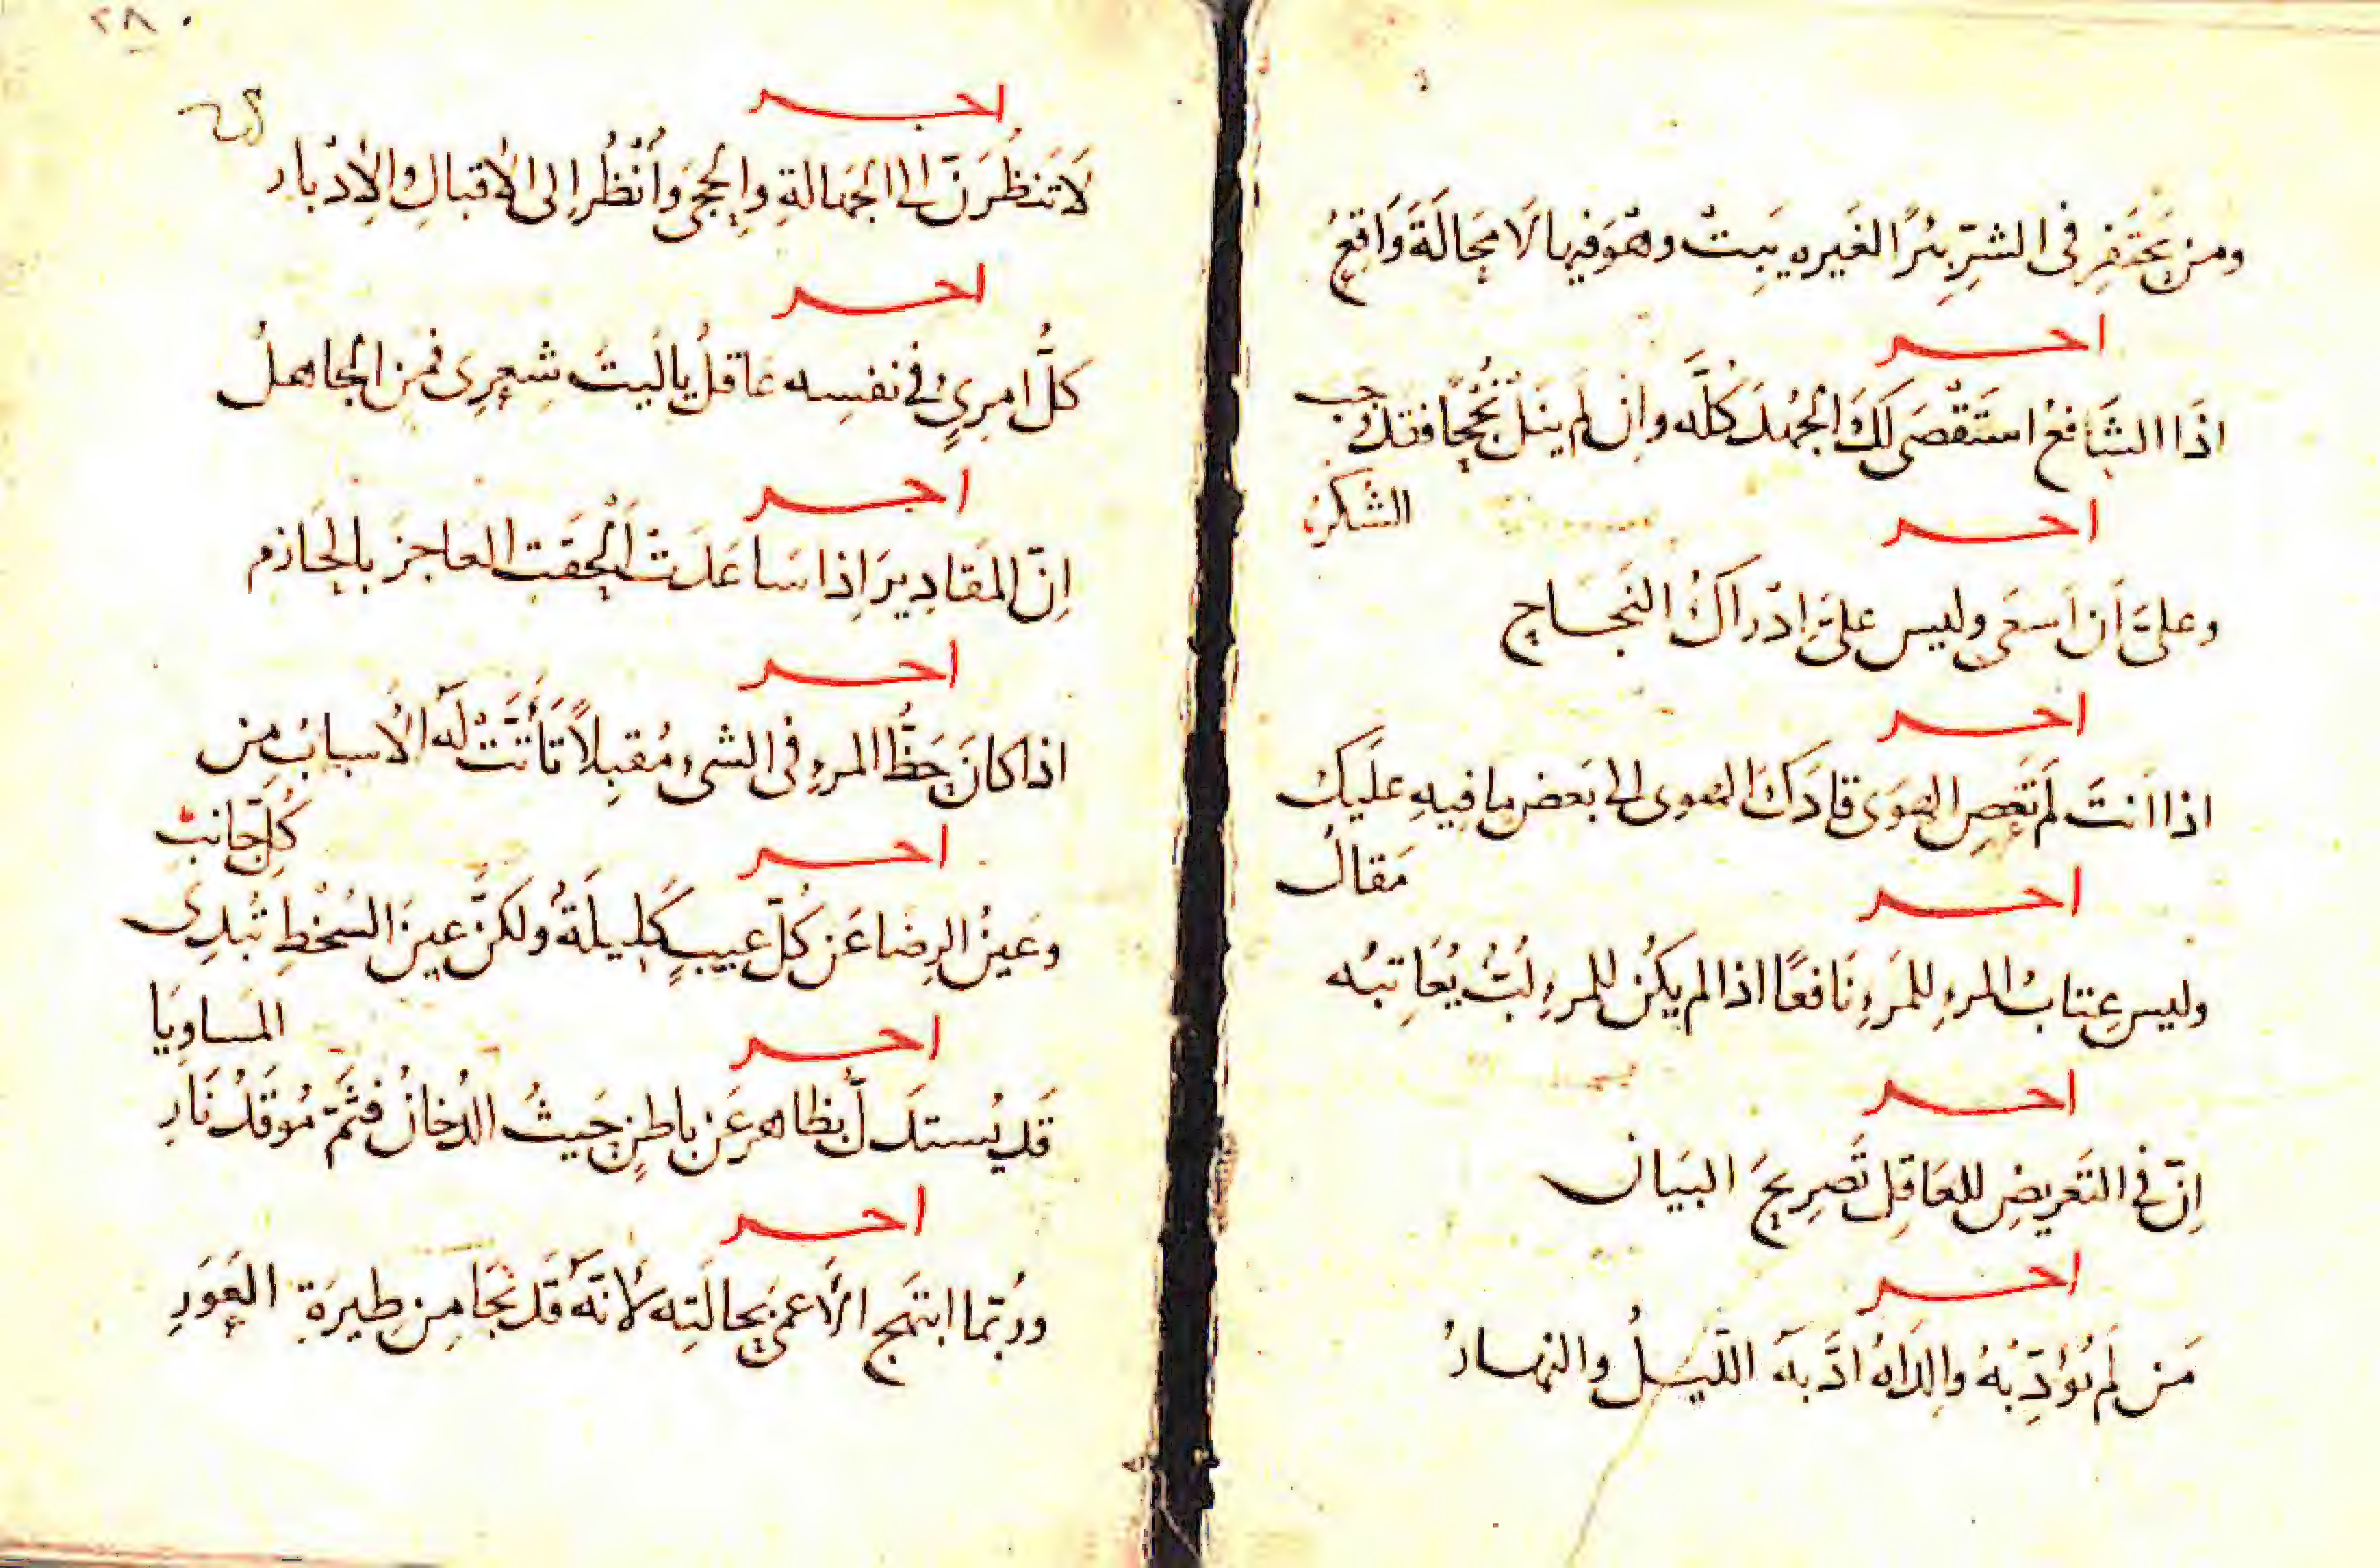 ومن يَحتَفِر فى الشرِّ بئرًا لغَيره يَبِتْ وهْوَ فيها لَا مَحَالَةَ وَاقِعُ
اخـــر
اذَا الشَافعُ استَقْصَى لَكَ الجُهدَ كُلَّه وان لم يَنَل نُجْحًا فقد وَجَبَ
الشُكرُ
اخـــر
وعلىَّ أن اَسعَى وليس علىَّ اِدْرَاكُ النَجَـاحِ
اخـــر
اذا اَنتَ لَم تَعصِ الهَوَى قادَكَ الهوى الى بَعض ما فيهِ عَلَيكَ
مَقالُ
اخـــر
وليس عِتابُ المرءِ للمَرءِ نَافعًا اذا لم يكُن للمرءِ لُبٌّ يُعَاتِبُه
اخـــر
اِنّ فى التَعريضِ للعَاقِلِ تَصرِيحَ البَيَان
اخـــر
مَن لَم يُؤدِّبْهُ والِدَاهُ ادَّبَه اللَّيـلُ والنهـارُ
٢٨٠
اخـــر
لَا تَنظُرَنَّ الى الجَهالةِ والحِجَى وَاُنْظُر اِلى الاِقبالِ والاِدْبارِ
اخـــر
كلُّ امرِئٍ فى نفسِه عَاقلُ يالَيتَ شِعرِى فمَن الجاهلُ
اخـــر
اِنّ المقَادِيرَ اِذا سَاعَدَتْ اَلْحَقَتِ العاجزَ بالحَازمِ
اخـــر
اذا كانَ حَظُّ المرءِ فى الشىءِ مُقبِلًا تَأَتَّتْ لَه الاَسبابُ مِن
كُلِّ جَانبِ
اخـــر
وعَينُ الرِضَا عَن كُلّ عيبٍ كَلِيلَةٌ ولكنَّ عينَ السُخْطِ تُبدِى
المَساوِيَا
اخـــر
قَد يُستدَلُّ بظاهرٍ عَن باطنٍ حَيثُ الدُخانُ فثَمَّ مُوقَدُ نَارِ
اخـــر
ورُبّما ابتَهج الاَعمى بحالَتِه لاَنّه قَد نَجَا مِن طِيرَةِ العَوَرِ